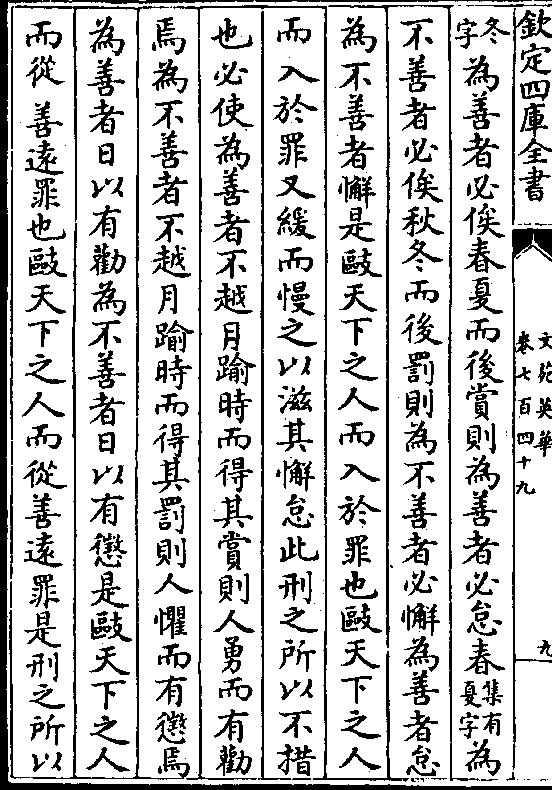 欽定四庫全書
文苑英華
卷七百四十九
九
冬字為善者必俟春夏而後賞則為善者必怠春集有夏字為
不善者必俟秋冬而後罰則為不善者必懈為善者怠
為不善者懈是敺天下之人而入於罪也敺天下之人
而入於罪又緩而慢之以滋其懈怠此刑之所以不措
也必使為善者不越月踰時而得其賞則人勇而有勸
焉為不善者不越月踰時而得其罰則人懼而有懲焉
為善者日以有勸為不善者日以有懲是敺天下之人
而從善遠罪也敺天下之人而從善遠罪是刑之所以